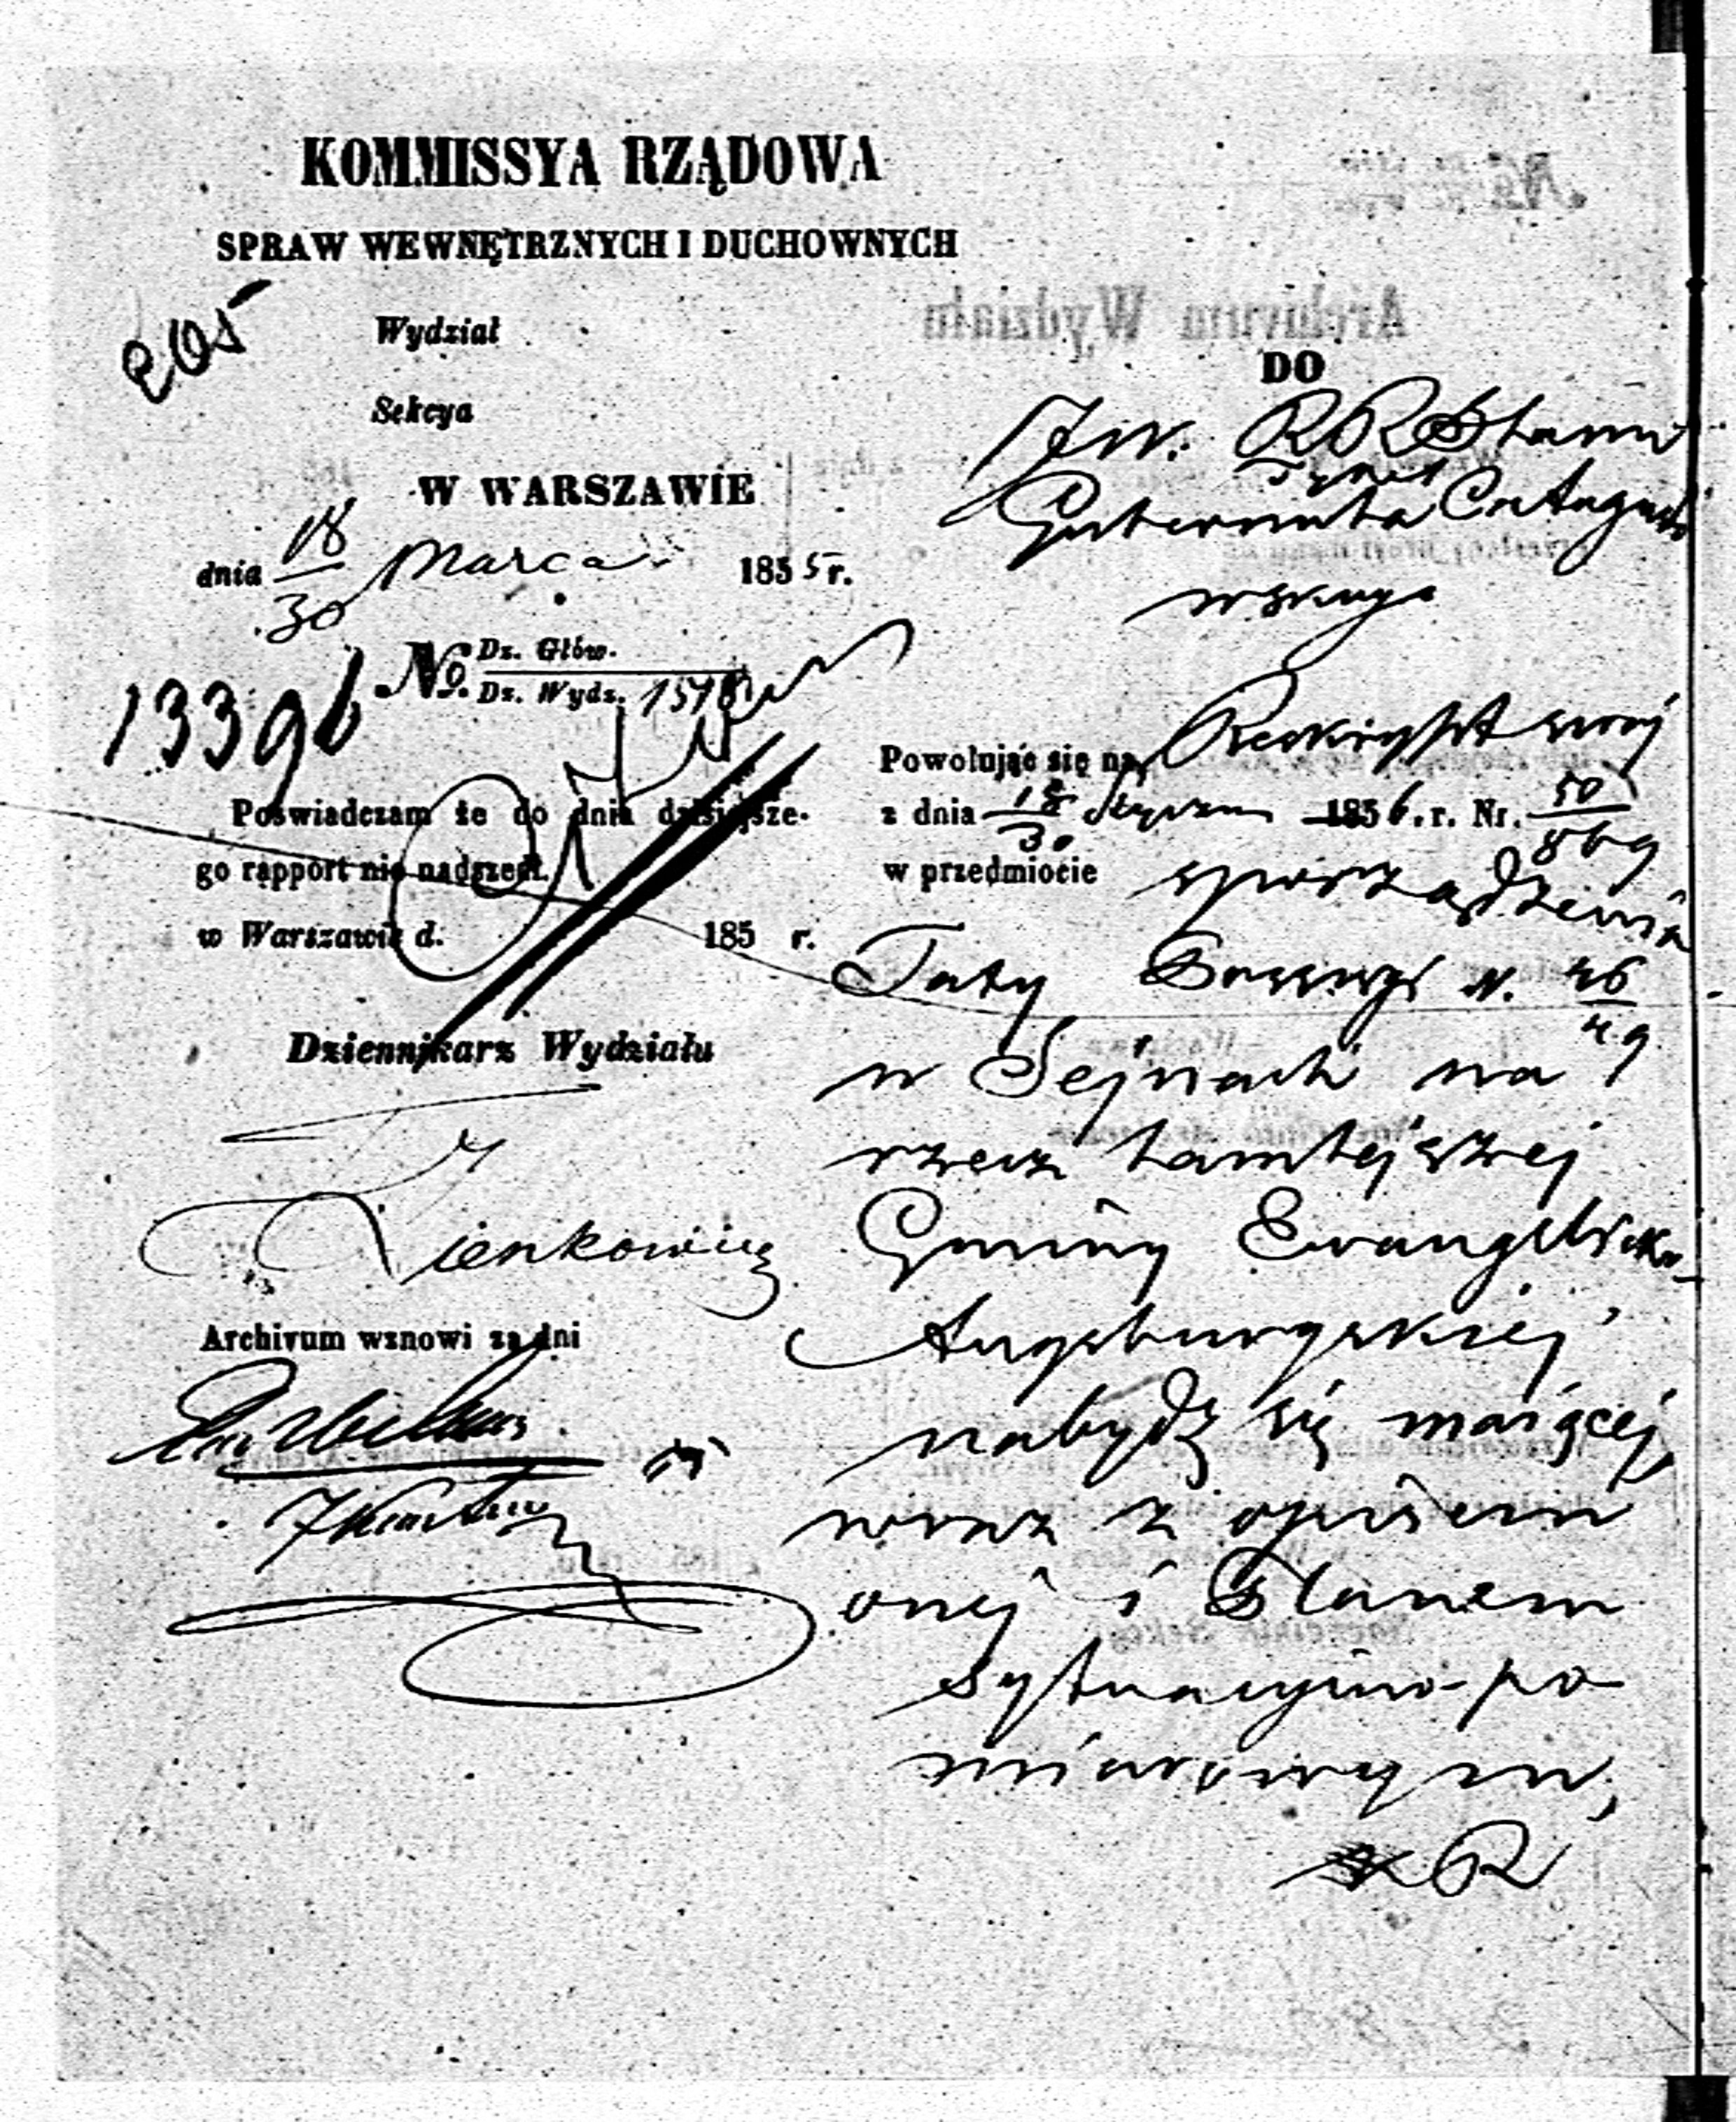 KOMMISSYA RZĄDOWA
SPRAW WEWNĘTRZNYCH I DUCHOWNYCH
205
Wydział
Sekcya
W WARSZAWIE
dnia 18/30 Marca 1855 r.
No. Dz. Głów.
Dz. Wydz. 1578
13396
Poświadczam że do dnia dzisiejsze-
go rapport nie nadszedł.
w Warszawie d. 185 r.
Dziennikarz Wydziału
Zienkowicz
Archivum wznowi za dni
Archivum Wydziału
DO
JW. RR Stanu
Gubernatora Cywil Augusto
wskiego
Powołując się na Reskrypt swój
z dnia 18/30 Stycznia 1856. r. Nr. 50/869
w przedmiocie sporządzenia
Taxy Possessyi N. 46/49
w Sejnach na
rzecz tamtejszej
Gminy Ewangelicko
Augsburgskiej
nabydź się maiącej,
wraz z opisem
onej i Planem
sytuacyino-po
miarowym,
KR